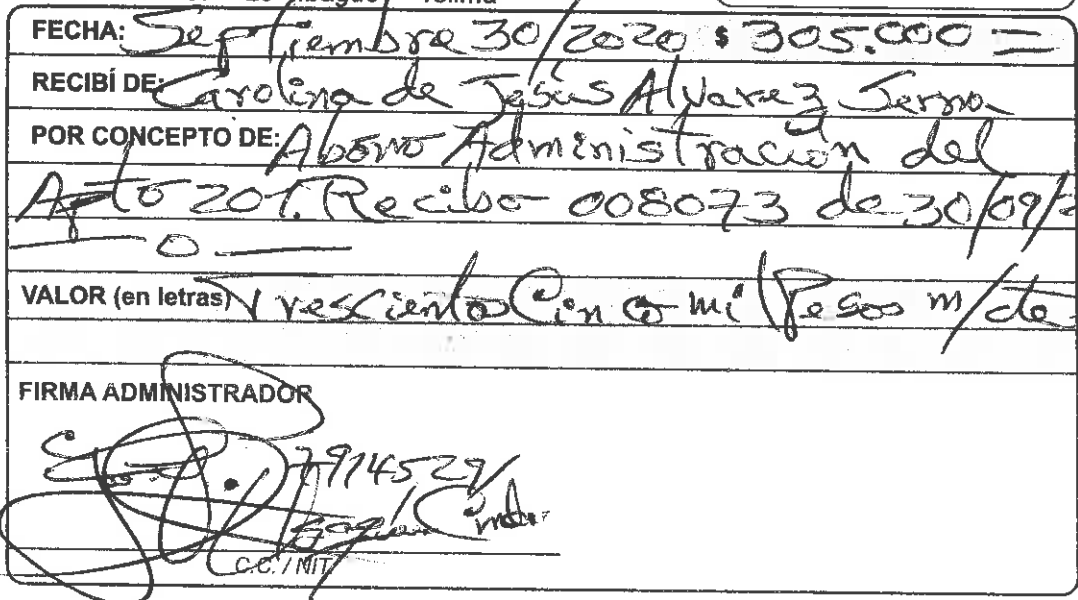 Tolima
FECHA: Septiembre 30/2020 $ 305.000 =
RECIBÍ DE: Carolina de Jesús Alvarez Serna
POR CONCEPTO DE: Abono Administración del
Apto 201. Recibo 008073 de 30/09/2
— 0 —
VALOR (en letras) Trescientos Cinco mil Pesos m/cte
FIRMA ADMINISTRADOR
C.C. / NIT.